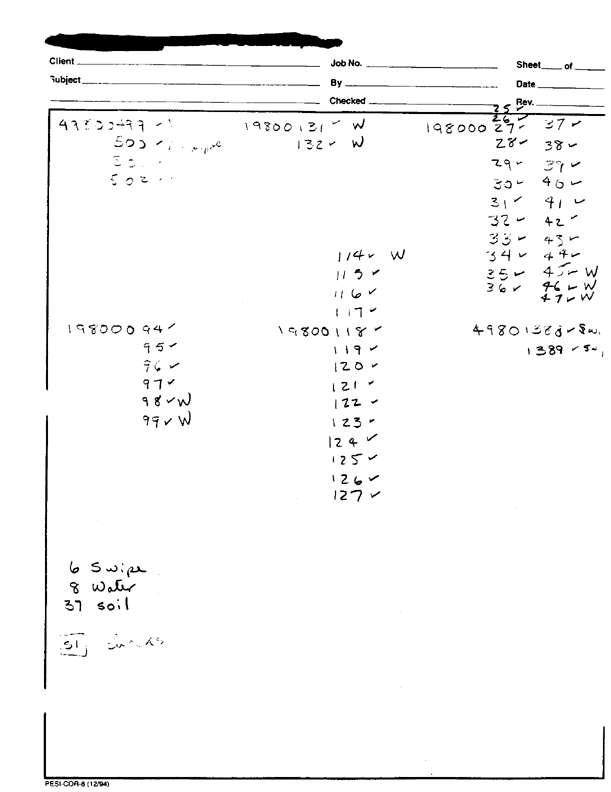 Client Job No. Sheet of
Subject By Date
Checked Rev.
25 ✓
26 ✓
19800131 ✓ W
132 ✓ W
19800027 ✓ 37 ✓
28 ✓ 38 ✓
29 ✓ 39 ✓
30 ✓ 40 ✓
31 ✓ 41 ✓
32 ✓ 42 ✓
33 ✓ 43 ✓
34 ✓ 44 ✓
35 ✓ 45 ✓ W
36 ✓ 46 ✓ W
47 ✓ W
500 ✓
502
114 ✓ W
115 ✓
116 ✓
117 ✓
19800094 ✓
95 ✓
96 ✓
97 ✓
98 ✓ W
99 ✓ W
19800118 ✓
119 ✓
120 ✓
121 ✓
122 ✓
123 ✓
124 ✓
125 ✓
126 ✓
127 ✓
49801388 ✓ Sw.
1389 ✓ Sw.
6 Swipe
8 Water
37 soil
51
PESI-COR-8 (12/94)